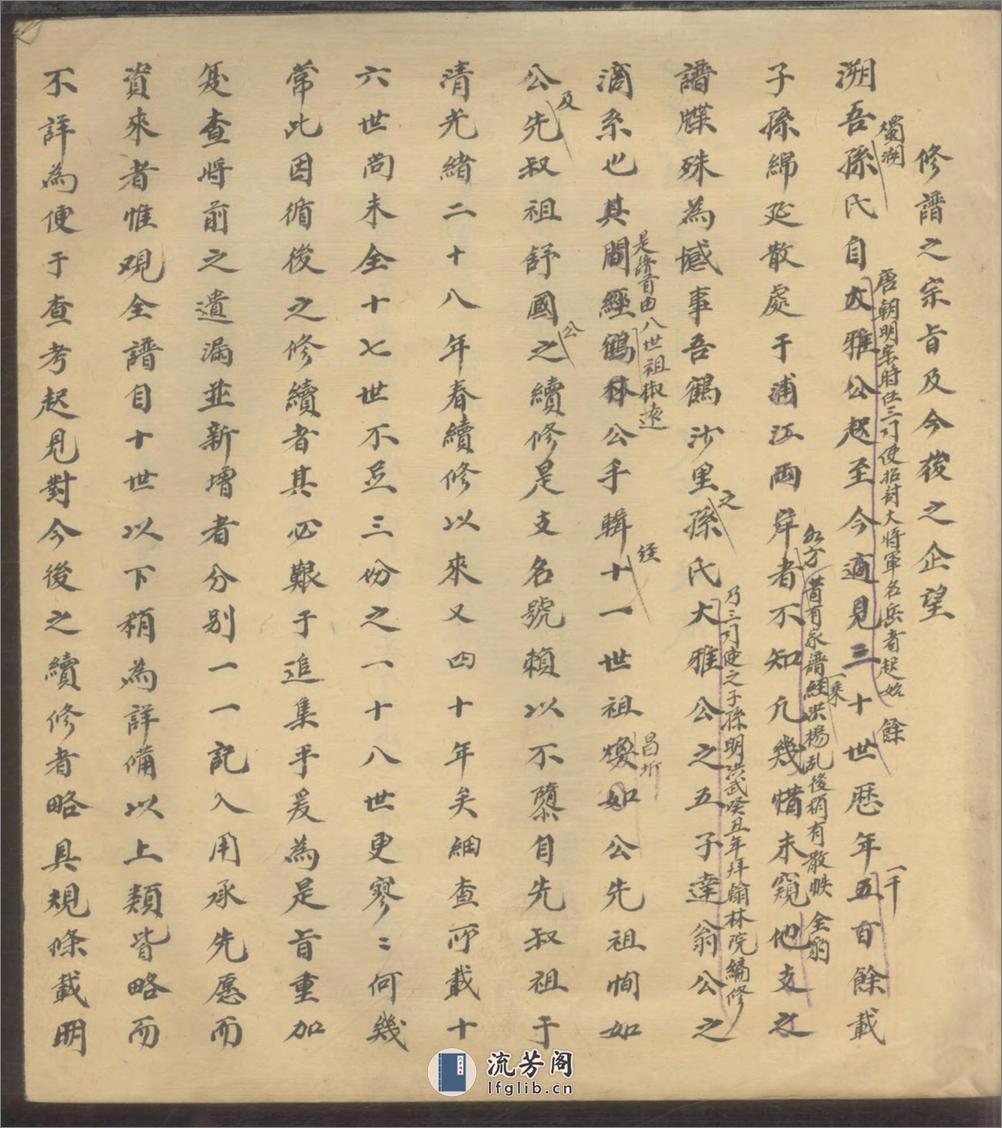 修譜之宗旨及今後之企望
獨溯
溯吾孫氏自大雅公起至今適見三十世歷年五百餘載
唐朝明宗時任三司使招封大將軍名岳者起始
餘
一千
子孫綿延散處于浦江兩岸者不知凡幾惜未窺他支之
昔有家譜經洪楊乱後稍有散帙
全豹
譜牒殊為憾事吾鶴沙里孫氏大雅公之五子達翁公之
之
乃三司使之子孫明洪武癸丑年拜翰林院編修
滴系也其間經鶴林公手輯十一世祖煥如公先祖恂如
是譜首由八世祖椒遠
昌圻
公先叔祖舒國之續修是支名號賴以不墮自先叔祖于
及
公
清光緒二十八年春續修以來又四十年矣細查所載十
六世尚未全十七世不足三份之一十八世更寥〻何幾
常此因循後之修續者其必艱于追集乎爰為是旨重加
复查將前之遺漏並新增者分別一一記入用承先愿而
資來者惟观全譜自十世以下稍為詳備以上類皆略而
不詳為便于查考起見對今後之續修者略具規條載明
流芳阁
lfglib.cn